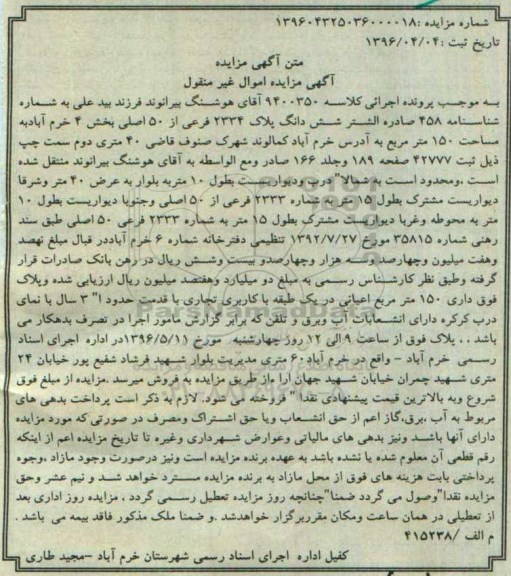 شماره مزایده :۱۳۹۶۰۴۳۲۵۰۳۶۰۰۰۰۱۸
تاریخ ثبت :۱۳۹۶/۰۴/۰۴
متن آگهی مزایده
آگهی مزایده اموال غیر منقول
به موجب پرونده اجرائی کلاسه ۹۴۰۰۳۵۰ آقای هوشنگ بیرانوند فرزند ید علی به شماره
شناسنامه ۴۵۸ صادره الشتر شش دانگ پلاک ۲۳۳۴ فرعی از ۵۰ اصلی بخش ۴ خرم آبادبه
مساحت ۱۵۰ متر مربع به آدرس خرم آباد کمالوند شهرک صنوف قاضی ۴۰ متری دوم سمت چپ
ذیل ثبت ۴۲۷۷۷ صفحه ۱۸۹ وجلد ۱۶۶ صادر ومع الواسطه به آقای هوشنگ بیرانوند منتقل شده
است ،ومحدود است به شمالا" درب ودیواریست بطول ۱۰ متربه بلوار به عرض ۴۰ متر وشرقا
دیواریست مشترک بطول ۱۵ متر به شماره ۲۳۳۳ فرعی از ۵۰ اصلی وجنوبا دیواریست بطول ۱۰
متر به محوطه وغربا دیواریست مشترک بطول ۱۵ متر به شماره ۲۳۳۳ فرعی ۵۰ اصلی طبق سند
رهنی شماره ۳۵۸۱۵ مورخ ۱۳۹۲/۷/۲۷ تنظیمی دفترخانه شماره ۶ خرم آباددر قبال مبلغ نهصد
وهفت میلیون وچهارصد وسه هزار وچهارصدو بیست وشش ریال در رهن بانک صادرات قرار
گرفته وطبق نظر کارشناس رسمی به مبلغ دو میلیارد وهفتصد میلیون ریال ارزیابی شده وپلاک
فوق داری ۱۵۰ متر مربع اعیانی در یک طبقه با کاربری تجاری با قدمت حدود ا" ۳ سال با نمای
درب کرکره دارای انشعابات آب وبرق و تلفن که برابر گزارش مامور اجرا در تصرف بدهکار می
باشد . . پلاک فوق از ساعت ۹ الی ۱۲ روز چهارشنبه مورخ ۱۳۹۶/۵/۱۱در اداره اجرای اسناد
رسمی خرم آباد - واقع در خرم آباد۶۰ متری مدیریت بلوار شهید فرشاد شفیع پور خیابان ۲۴
متری شهید چمران خیابان شهید جهان آرا ،از طریق مزایده به فروش میرسد .مزایده از مبلغ فوق
شروع وبه بالاترین قیمت پیشنهادی نقدا " فروخته می شود. لازم به ذکر است پرداخت بدهی های
مربوط به آب ،برق،گاز اعم از حق انشعاب ویا حق اشتراک ومصرف در صورتی که مورد مزایده
دارای آنها باشد ونیز بدهی های مالیاتی وعوارض شهرداری وغیره تا تاریخ مزایده اعم از اینکه
رقم قطعی آن معلوم شده یا نشده باشد به عهده برنده مزایده است ونیز درصورت وجود مازاد ،وجوه
پرداختی بابت هزینه های فوق از محل مازاد به برنده مزایده مسترد خواهد شد و نیم عشر وحق
مزایده نقدا"وصول می گردد ضمنا"چنانچه روز مزایده تعطیل رسمی گردد ، مزایده روز اداری بعد
از تعطیلی در همان ساعت ومکان مقرربرگزار خواهدشد .و ضمنا ملک مذکور فاقد بیمه می باشد .
م الف /۴۱۵۲۳۸
کفیل اداره اجرای اسناد رسمی شهرستان خرم آباد –مجید طاری